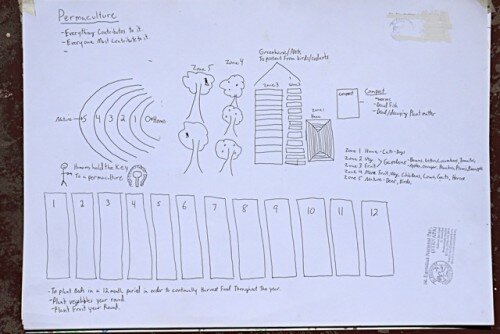 Permaculture
- Everything Contributes to it.
- Everyone Must Contribute to it.
Zone 5
Zone 4
Greenhouse/Nets
To protect From birds/rodents
Zone 3
Zone 1
House
compost
Compost
- Worms
- Dead Fish
- Dead/decaying Plant matter
Nature
5
4
3
2
1
Home
Humans hold the Key
To a permaculture
Zone 1 Home - Cats - Dogs
Zone 2 Veg. Gardens - Beans, Lettuce, Cucumbers, Tomatoes
Zone 3 Fruit
Zone 4 More Fruit, Veg, Chickens, Cows, Goats, Horse
Zone 5 Nature - Deer, Birds,
1
2
3
4
5
6
7
8
9
10
11
12
- To plant Beds in a 12 month period in order to continually Harvest Food Throughout The year.
- Plant vegetables year round.
- Plant Fruit year Round.